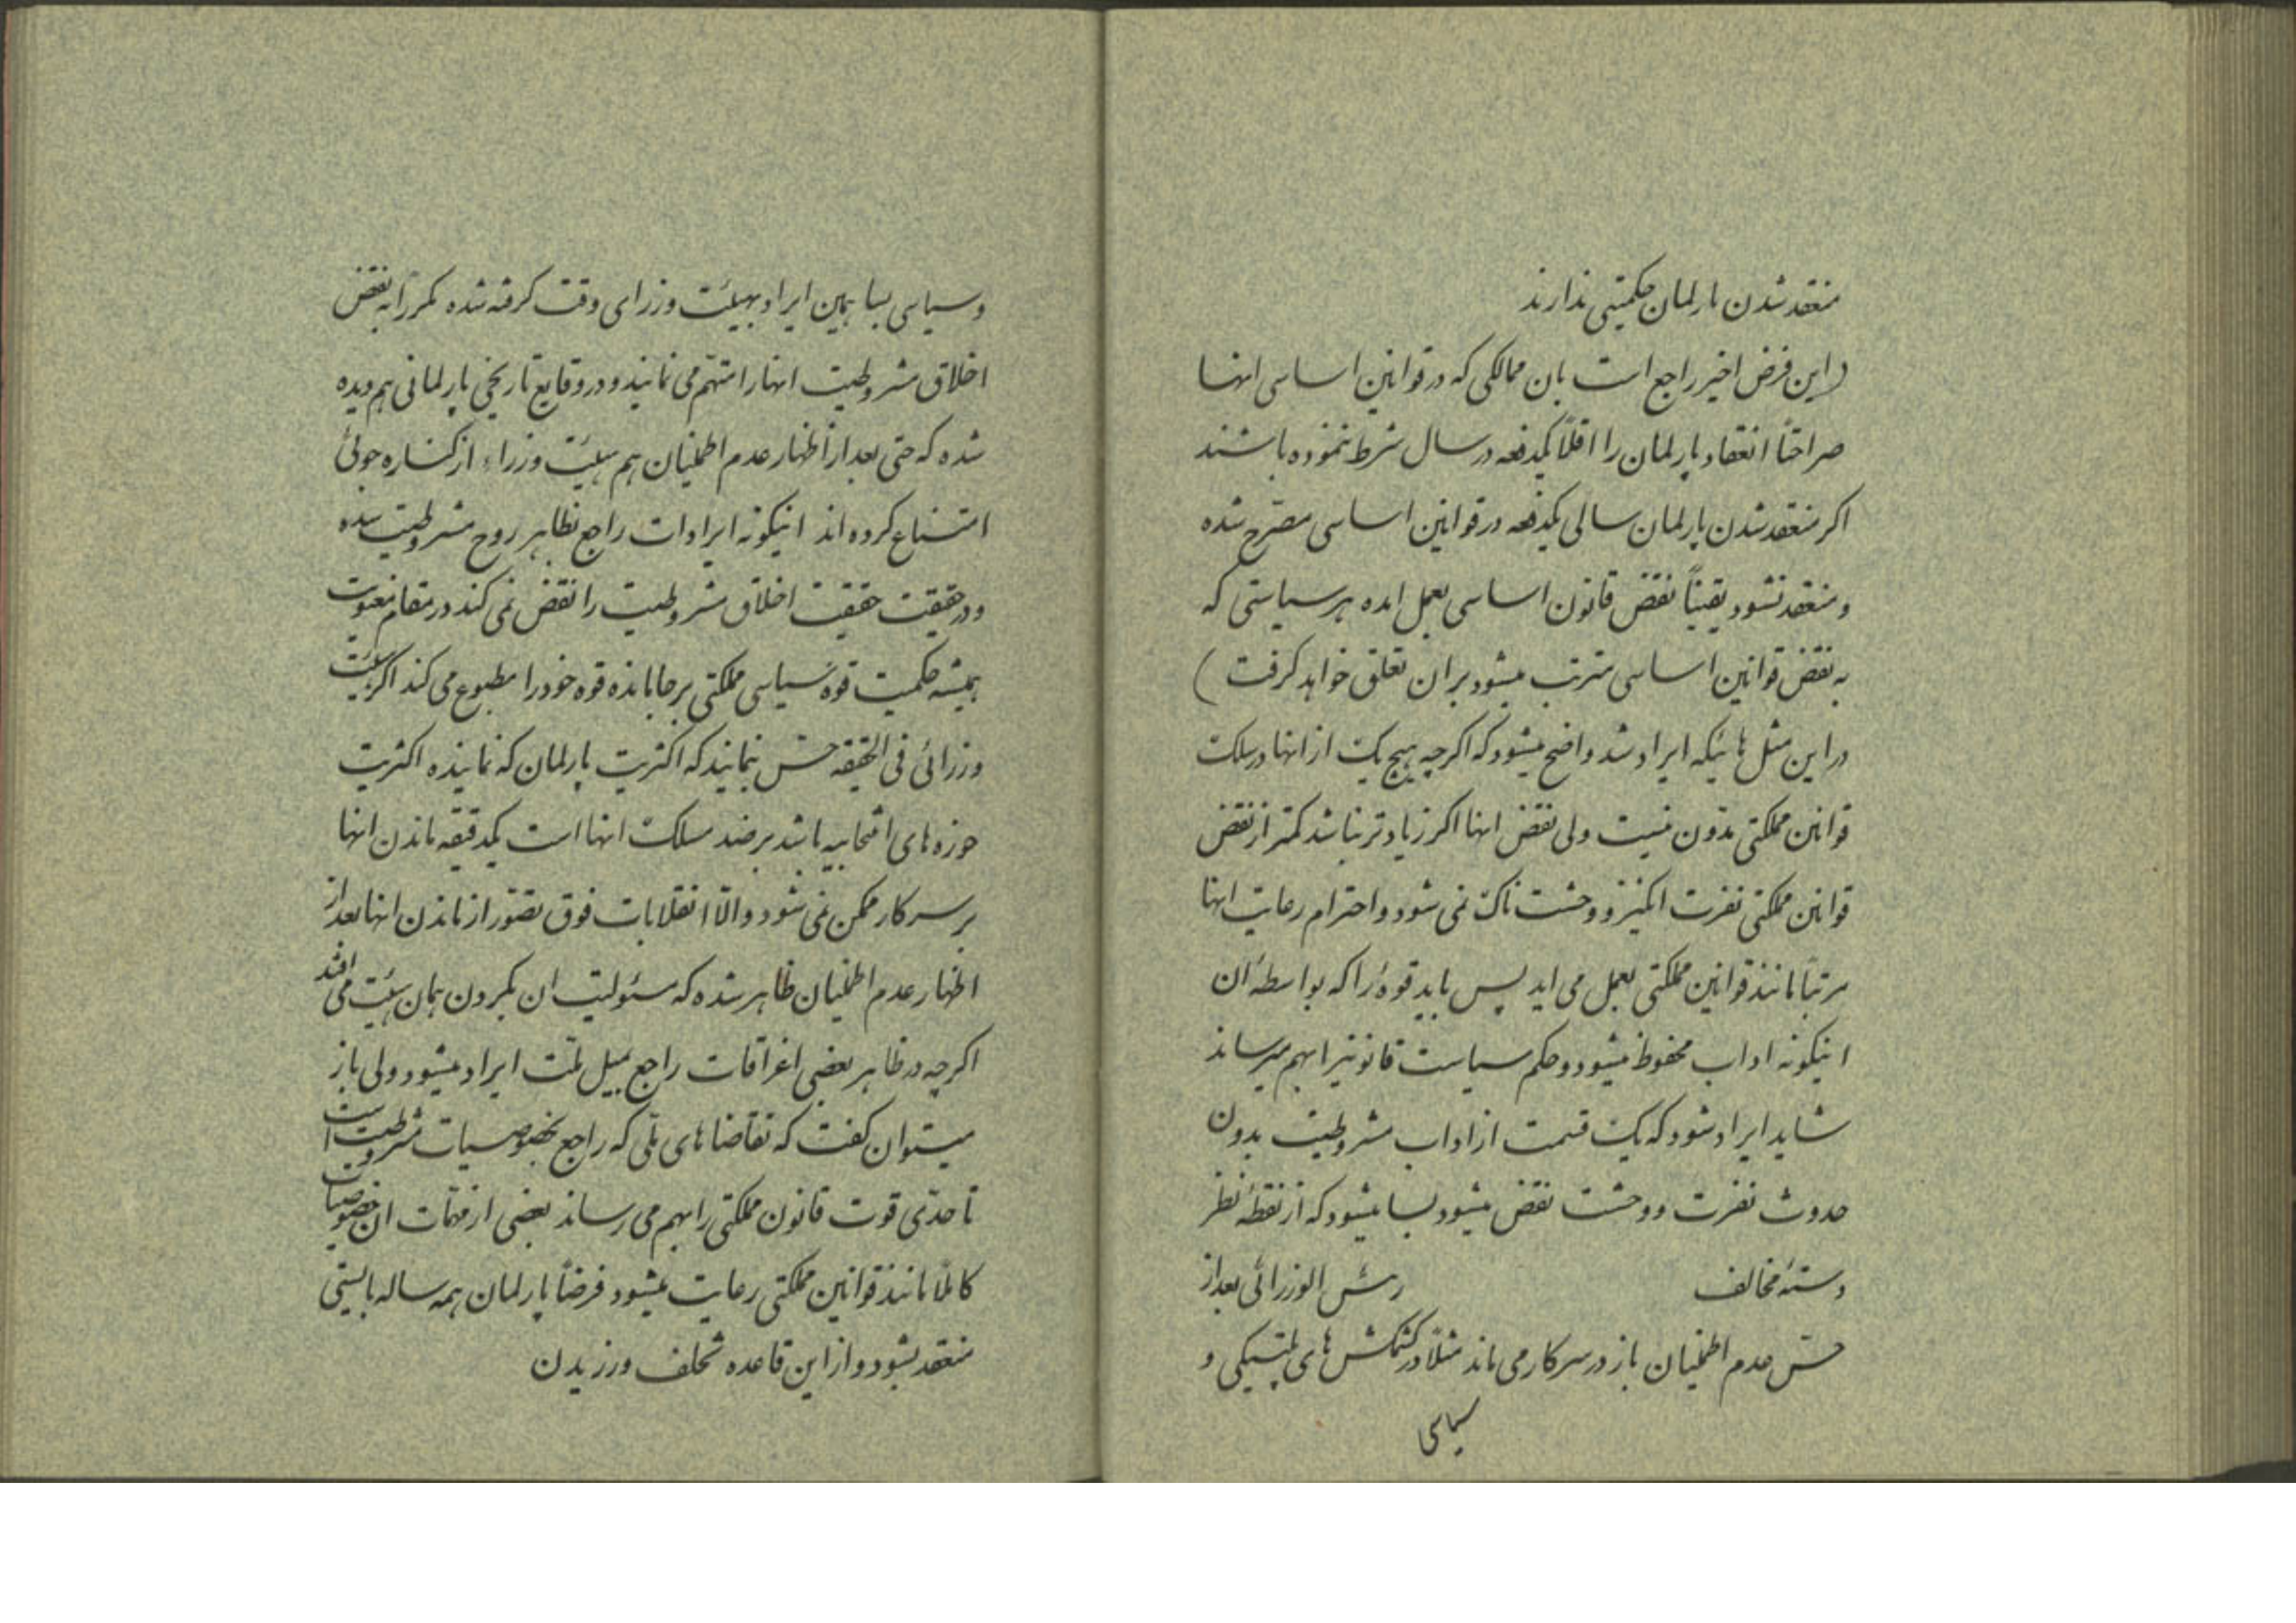 منعقد شدن پارلمان حکمیتی ندارند
(این فرض اخیر راجع است بان ممالکی که در قوانین اساسی انها
صراحتاً انعقاد پارلمان را اقلاً یکدفعه در سال شرط نموده باشند
اکر منعقد شدن پارلمان سالی یکدفعه در قوانین اساسی مصرح شده
و منعقد نشود یقیناً نقض قانون اساسی بعمل امده هر سیاستی که
به نقض قوانین اساسی مترتب میشود بر ان تعلق خواهد کرفت )
در این مثل هائیکه ایراد شد واضح میشود که اکرچه هیچ یک از انها در سلک
قوانین مملکتی مدون نیست ولی نقض انها اکر زیادتر نباشد کمتر از نقض
قوانین مملکتی نفرت انکیز و وحشت ناک نمی شود و احترام رعایت انها
مرتباً مانند قوانین مملکتی بعمل می اید پس باید قوهٔ را که بواسطهٔ ان
اینکونه اداب محفوظ میشود و حکم سیاست قانونیرا بهم میرساند
شاید ایراد شود که یک قسمت از اداب مشروطیت بدون
حدوث نفرت و وحشت نقض میشود بسا میشود که از نقطهٔ نظر
دستهٔ مخالف رئس الوزرائی بعد از
حس عدم اطمینان باز در سر کار می ماند مثلاً در کشمکش های پلتیکی و
سیاسی
و سیاسی بسا همین ایراد بهیئت وزرای وقت کرفته شده مکرراً به نقض
اخلاق مشروطیت انها را متهم می نمایند و در وقایع تاریخی پارلمانی هم دیده
شده که حتی بعد از اظهار عدم اطمینان هم هیئت وزراء از کناره جوئی
امتناع کرده اند اینکونه ایرادات راجع بظاهر روح مشروطیت شده
و در حقیقت حقیقت اخلاق مشروطیت را نقض نمی کند در مقام معنویت
همیشه حکمیت قوهٔ سیاسی مملکتی بر جا مانده قوه خود را مطبوع می کند اکر هیئت
وزرائی فی الحقیقه حس نمایند که اکثریت پارلمان که نماینده اکثریت
حوزه های انتخابیه باشد بر ضد مسلک انها است یکدقیقه ماندن انها
بر سر کار ممکن نمی شود و الا انقلابات فوق تصور از ماندن انها بعد از
اظهار عدم اطمینان ظاهر شده که مسئولیت ان بکردن همان هیئت می افتد
اکرچه در ظاهر بعضی اغراقات راجع بمیل ملت ایراد میشود ولی باز
میتوان کفت که تقاضاهای ملی که راجع بخصوصیات مشروطیت است
تا حدی قوت قانون مملکتی را بهم می رساند بعضی از مهمات ان خصوصیات
کاملاً مانند قوانین مملکتی رعایت میشود فرضاً پارلمان همه ساله بایستی
منعقد بشود و از این قاعده تخلف ورزیدن